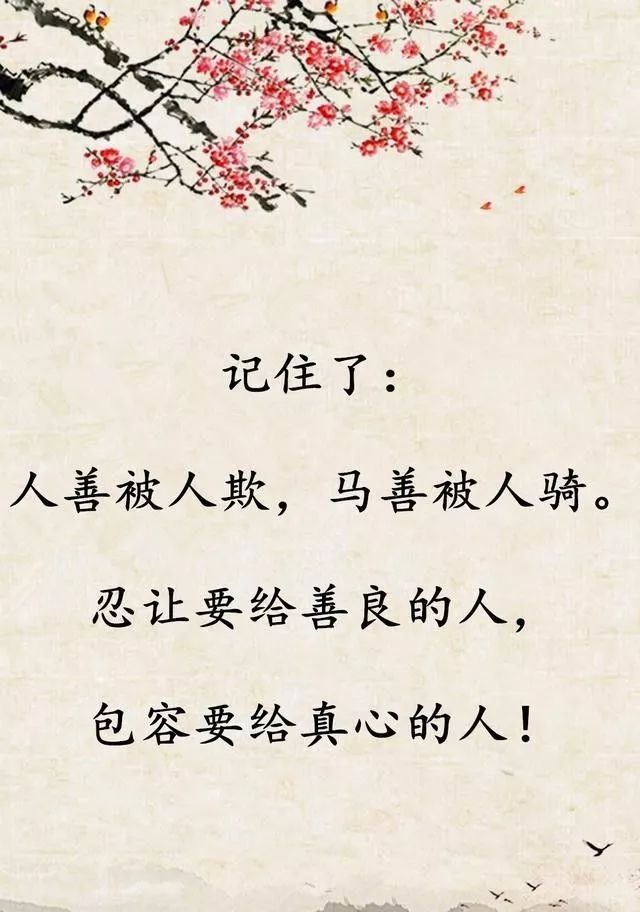 记住了：
人善被人欺，马善被人骑。
忍让要给善良的人，
包容要给真心的人！